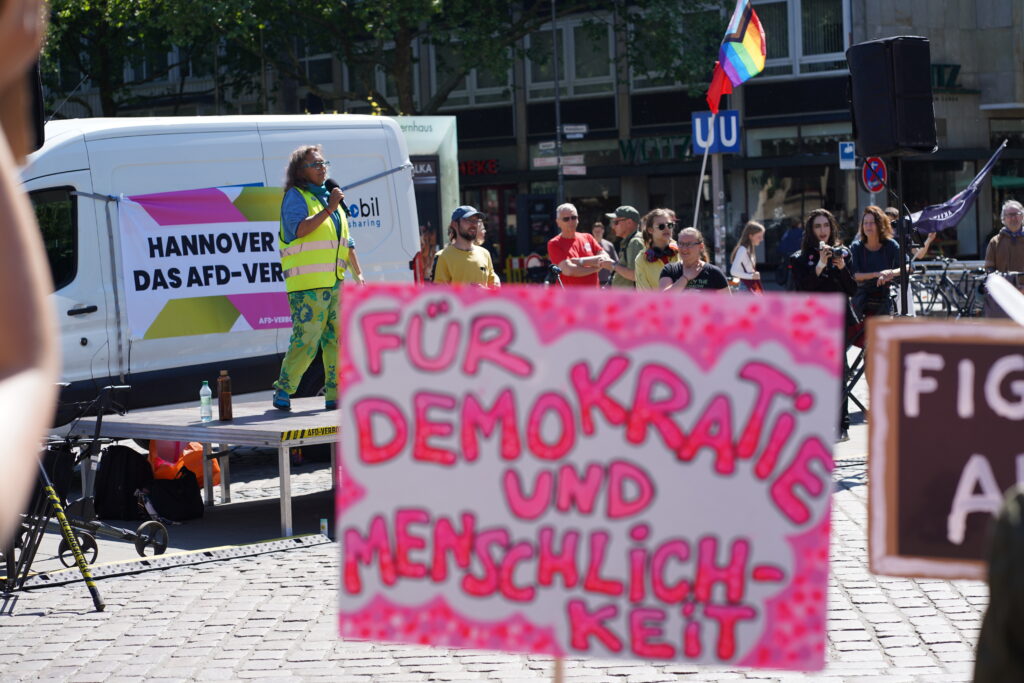 HANNOVER
DAS AFD-VER
AFD-VERB
bil
sharing
ernhaus
U U
AFD-VERBO
FÜR
DEMOKRATIE
UND
MENSCHLICH-
KEIT
FIG
A